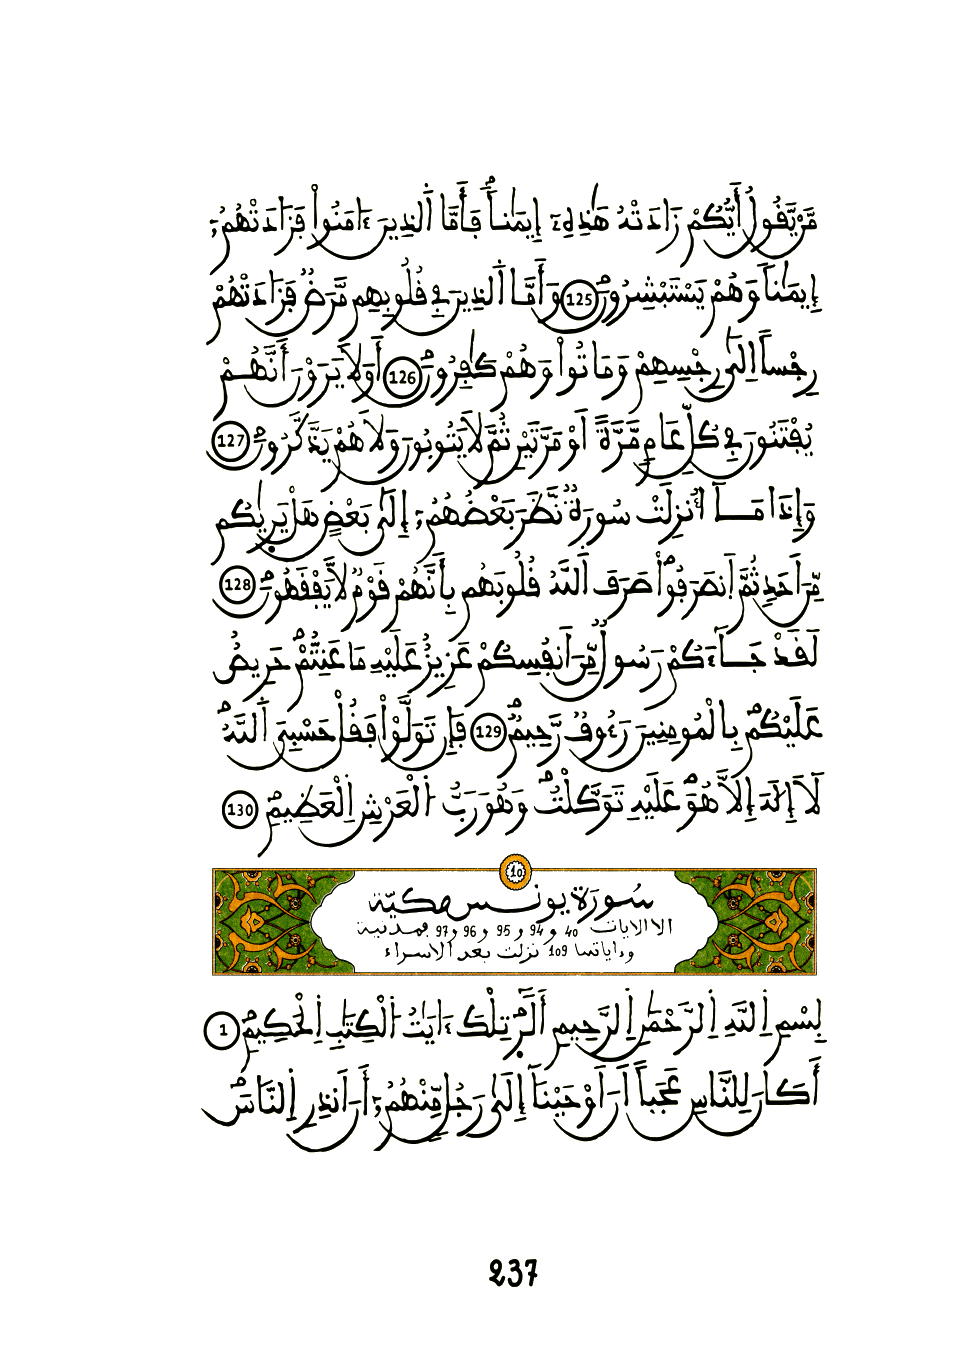 مَّنْ يَّقُولُ أَيُّكُمْ زَادَتْهُ هَٰذِهِۦٓ إِيمَٰناً فَأَمَّا اَ۬لذِينَ ءَامَنُواْ فَزَادَتْهُمُۥٓ
إِيمَٰناً وَهُمْ يَسْتَبْشِرُونَ 125 وَأَمَّا اَ۬لذِينَ فِي قُلُوبِهِم مَّرَضٞ فَزَادَتْهُمْ
رِجْساً إِلَىٰ رِجْسِهِمْ وَمَاتُواْ وَهُمْ كَٰفِرُونَ 126 أَوَلَا يَرَوْنَ أَنَّهُمْ
يُفْتَنُونَ فِي كُلِّ عَامٖ مَّرَّةً أَوْ مَرَّتَيْنِ ثُمَّ لَا يَتُوبُونَ وَلَا هُمْ يَذَّكَّرُونَ 127
وَإِذَا مَآ أُنزِلَتْ سُورَةٞ نَّظَرَ بَعْضُهُمُۥٓ إِلَىٰ بَعْضٍ هَلْ يَر۪يٰكُم
مِّنَ اَحَدٖ ثُمَّ اَ۪نصَرَفُواْ صَرَفَ اَ۬للَّهُ قُلُوبَهُم بِأَنَّهُمْ قَوْمٞ لَّا يَفْقَهُونَ 128
لَقَدْ جَآءَكُمْ رَسُولٞ مِّنَ اَنفُسِكُمْ عَزِيزٌ عَلَيْهِ مَا عَنِتُّمْ حَرِيصٌ
عَلَيْكُم بِالْمُومِنِينَ رَءُوفٞ رَّحِيمٞ 129 فَإِن تَوَلَّوْاْ فَقُلْ حَسْبِيَ اَ۬للَّهُ
لَآ إِلَٰهَ إِلَّا هُوَ عَلَيْهِ تَوَكَّلْتُ وَهُوَ رَبُّ اُ۬لْعَرْشِ اِ۬لْعَظِيمِ 130
10
سُورَة يونس مكيّة
الا الايات 40 و 94 و 95 و 96 و 97 فمدنية
وءاياتها 109 نزلت بعد الاسراء
بِسْمِ اِ۬للَّهِ اِ۬لرَّحْمَٰنِ اِ۬لرَّحِيمِ أَلَٓر۪ تِلْكَ ءَايَٰتُ اُ۬لْكِتَٰبِ اِ۬لْحَكِيمِ 1
أَكَانَ لِلنَّاسِ عَجَباً اَنَ اَوْحَيْنَآ إِلَىٰ رَجُلٖ مِّنْهُمُۥٓ أَنَ اَنذِرِ اِ۬لنَّاسَ
237